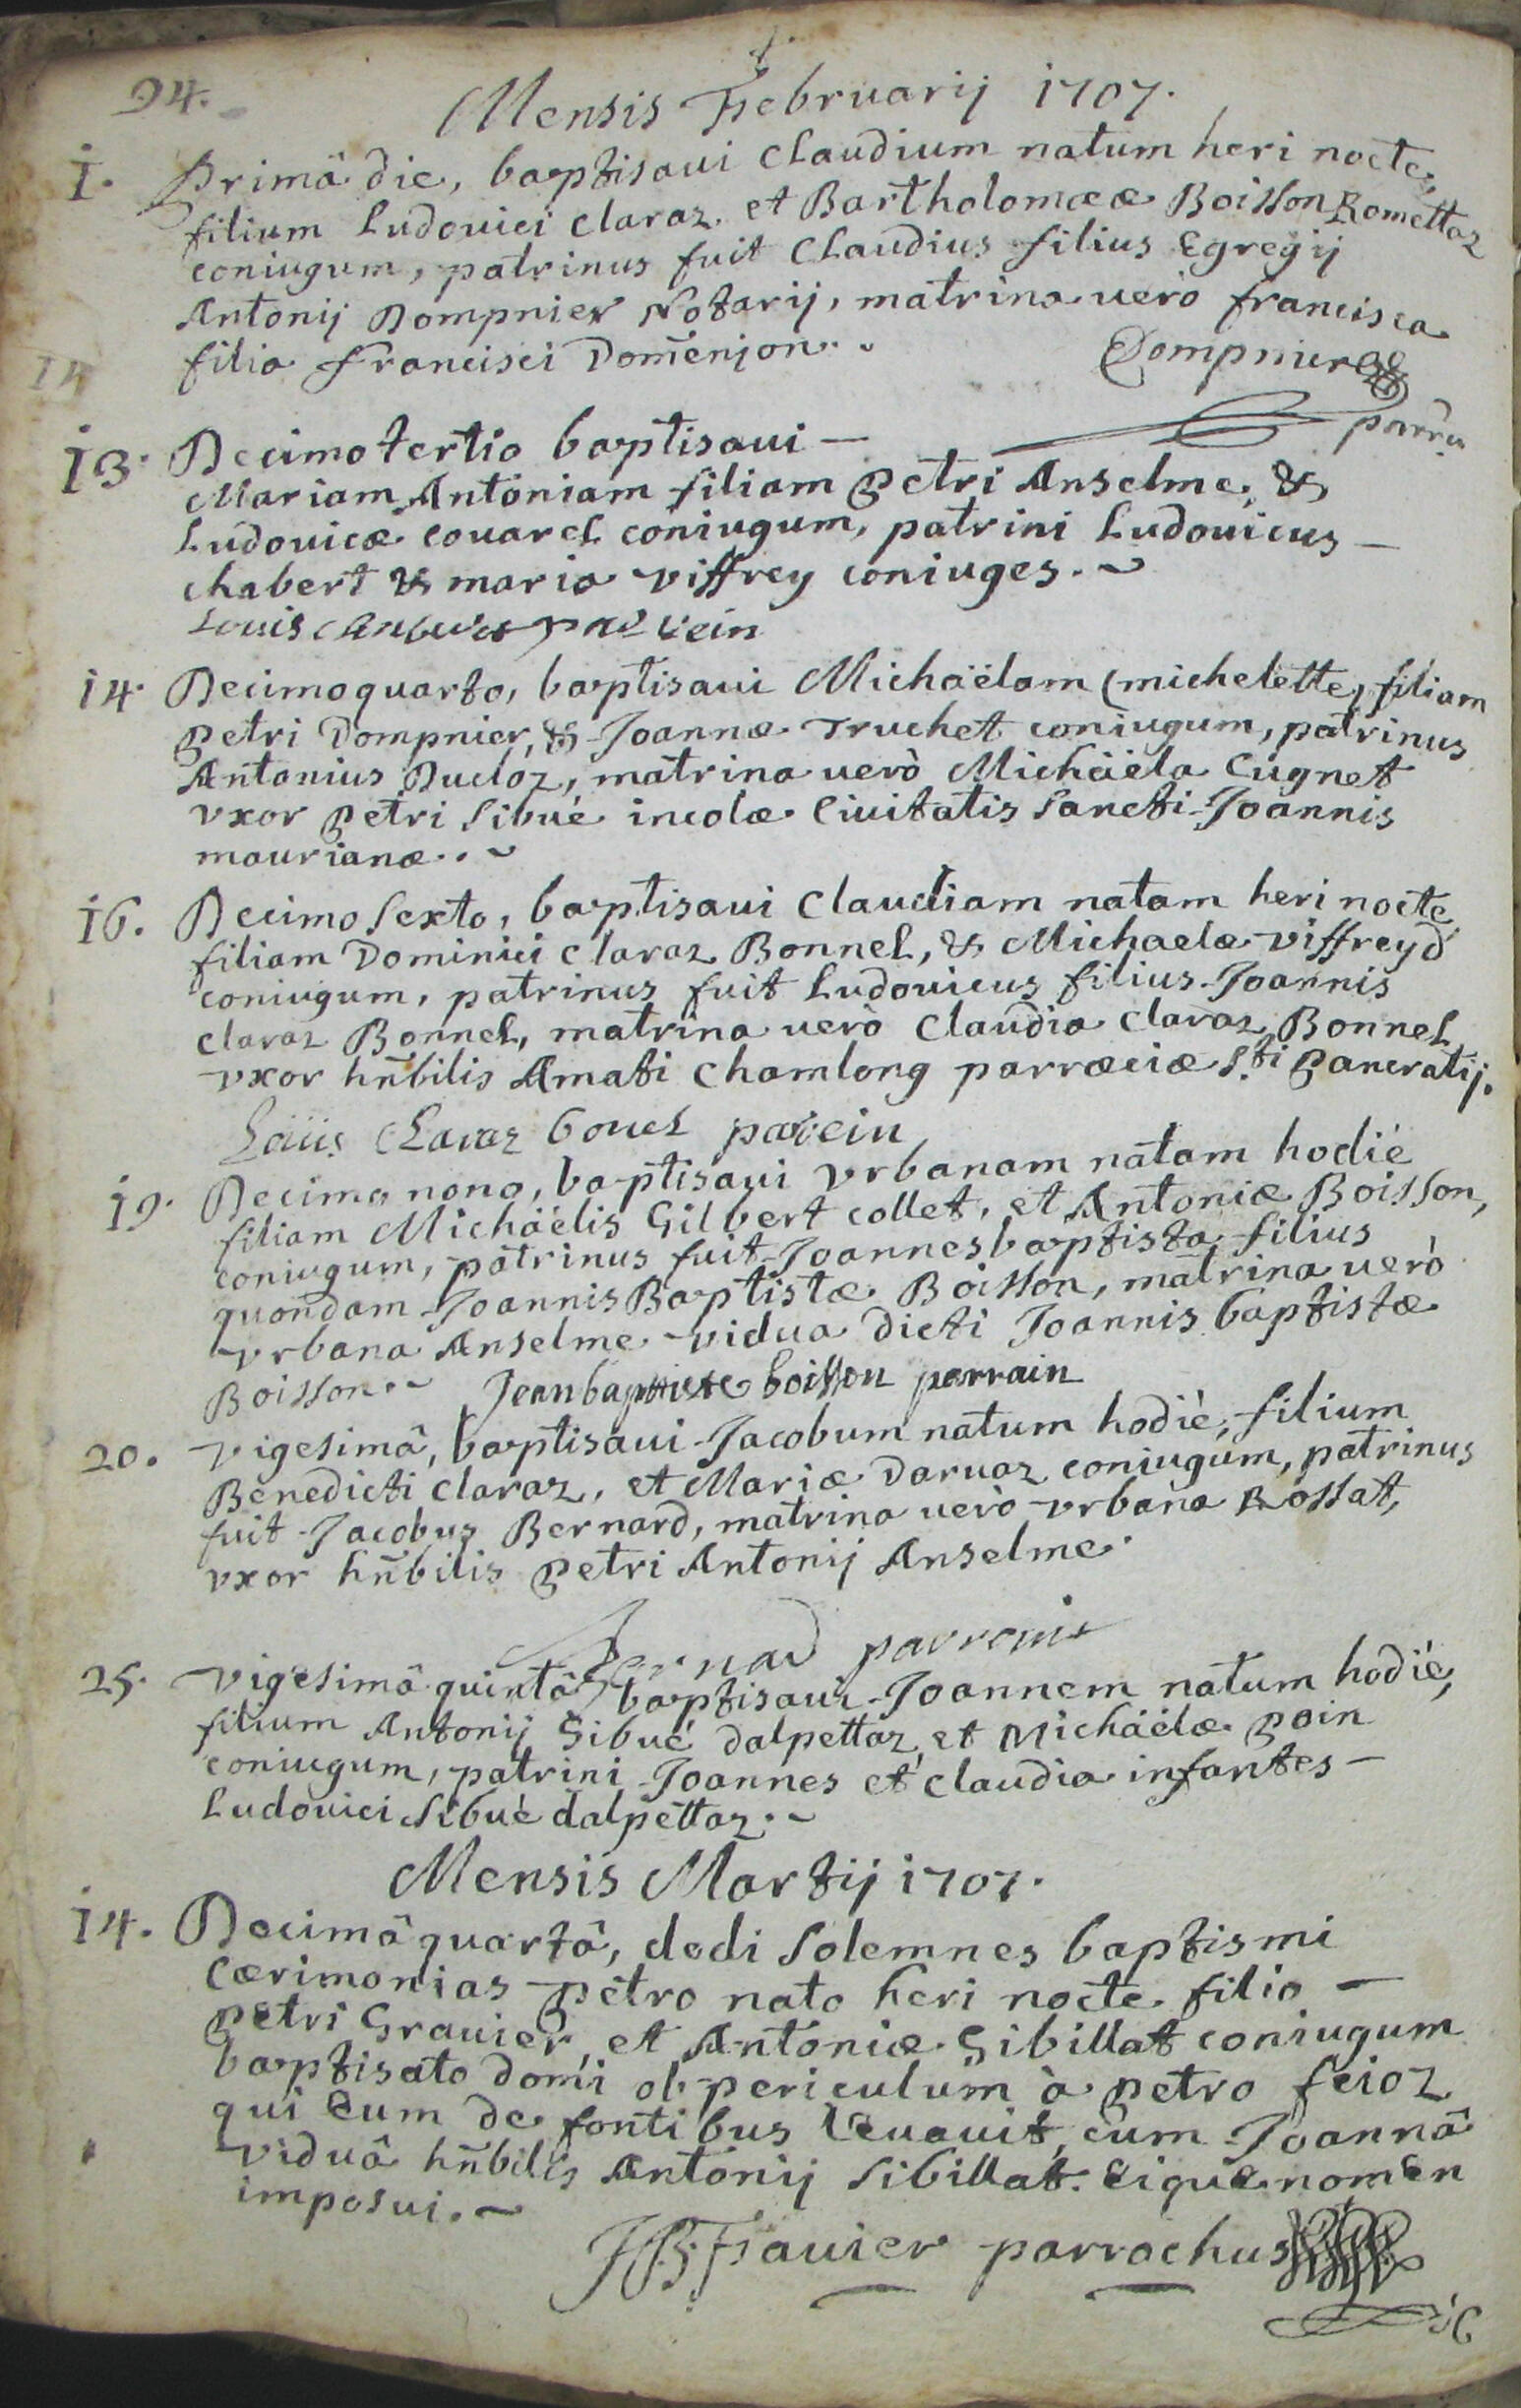 94.
Mensis Februarij 1707.
1. Primâ die, baptisaui Claudium natum heri nocte,
filium Ludouici Claraz et Bartholomææ Boisson Romettaz
coniugum, patrinus fuit Claudius filius Egregij
Antonij Dompnier Notarij, matrina uero francisca
filia francisci Domenjon.
Dompnier
parrin
13. Decimo tertio baptisaui —
Mariam Antoniam filiam Petri Anselme, &
Ludouicæ Couarel coniugum, patrini Ludouicus —
chabert & maria Viffrey coniuges.
Louis parrein
14. Decimoquarto, baptisaui Michäelam (michelette) filiam
Petri Dompnier, & Joannæ Truchet coniugum, patrinus
Antonius Ducloz, matrina uerò Michäela Cugnet
vxor Petri Sibué incolæ Ciuitatis Sancti Joannis
maurianæ.
16. Decimo Sexto, baptisaui Claudiam natam heri nocte,
filiam Dominici Claraz Bonnel, & Michaelæ Viffreyd
coniugum, patrinus fuit Ludouicus filius Joannis
Claraz Bonnel, matrina uerò Claudia Claraz Bonnel
vxor hñbilis Amati Chamlong parræciæ S.ti Pancratij.
Loüis Claraz bonel parein
19. Decimo nono, baptisaui Vrbanam natam hodié
filiam Michäelis Gilbert collet, et Antoniæ Boisson,
coniugum, patrinus fuit Joannes baptista filius
quondam Joannis Baptistæ Boisson, matrina uerò
vrbana Anselme vidua dicti Joannis baptistæ
Boisson. Jean baptiste boisson parrain
20. Vigesimâ, baptisaui Jacobum natum hodiè, filium
Benedicti Claraz, et Mariæ Daruaz coniugum, patrinus
fuit Jacobus Bernard, matrina uerò vrbana Rossat,
vxor hñbilis Petri Antonij Anselme.
Bernad parrain
25. Vigesimâ quintâ baptisaui Joannem natum hodié,
filium Antonij Sibué dalpettaz, et Michäelæ Poin
coniugum, patrini Joannes et Claudia infantes —
Ludouici Sibué dalpettaz.
Mensis Martij 1707.
14. Decimâ quartâ, dedi Solemnes baptismi
Cærimonias Petro nato heri nocte filio —
Petri Grauier, et Antoniæ Sibillat coniugum
baptisato domi ob periculum à Petro feioz
qui Eum de fontibus leuauit, cum Joannâ
viduâ hñbilis Antonij Sibillat. Eique nomen
imposui.
JB Frauier parrochus